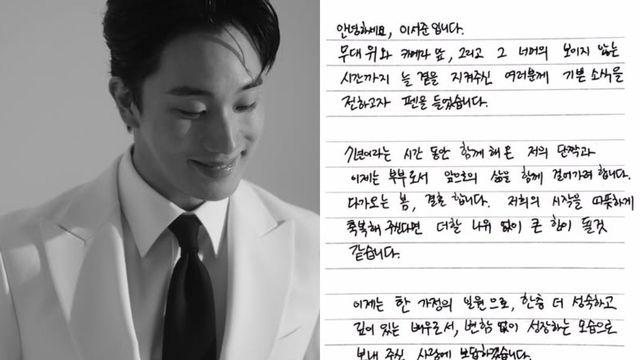 안녕하세요, 이서준 입니다.
무대 위와 카메라 앞, 그리고 그 너머의 보이지 않는
시간까지 늘 곁을 지켜주신 여러분께 기쁜 소식을
전하고자 펜을 들었습니다.
7년이라는 시간 동안 함께 해 온 저의 단짝과
이제는 부부로서 앞으로의 삶을 함께 걸어가려 합니다.
다가오는 봄, 결혼 합니다. 저희의 시작을 따뜻하게
축복해 주신다면 더할 나위 없이 큰 힘이 될것
같습니다.
이제는 한 가정의 일원으로, 한층 더 성숙하고
깊이 있는 배우로서, 변함 없이 성장하는 모습으로
보내 주신 사랑에 보답하겠습니다.